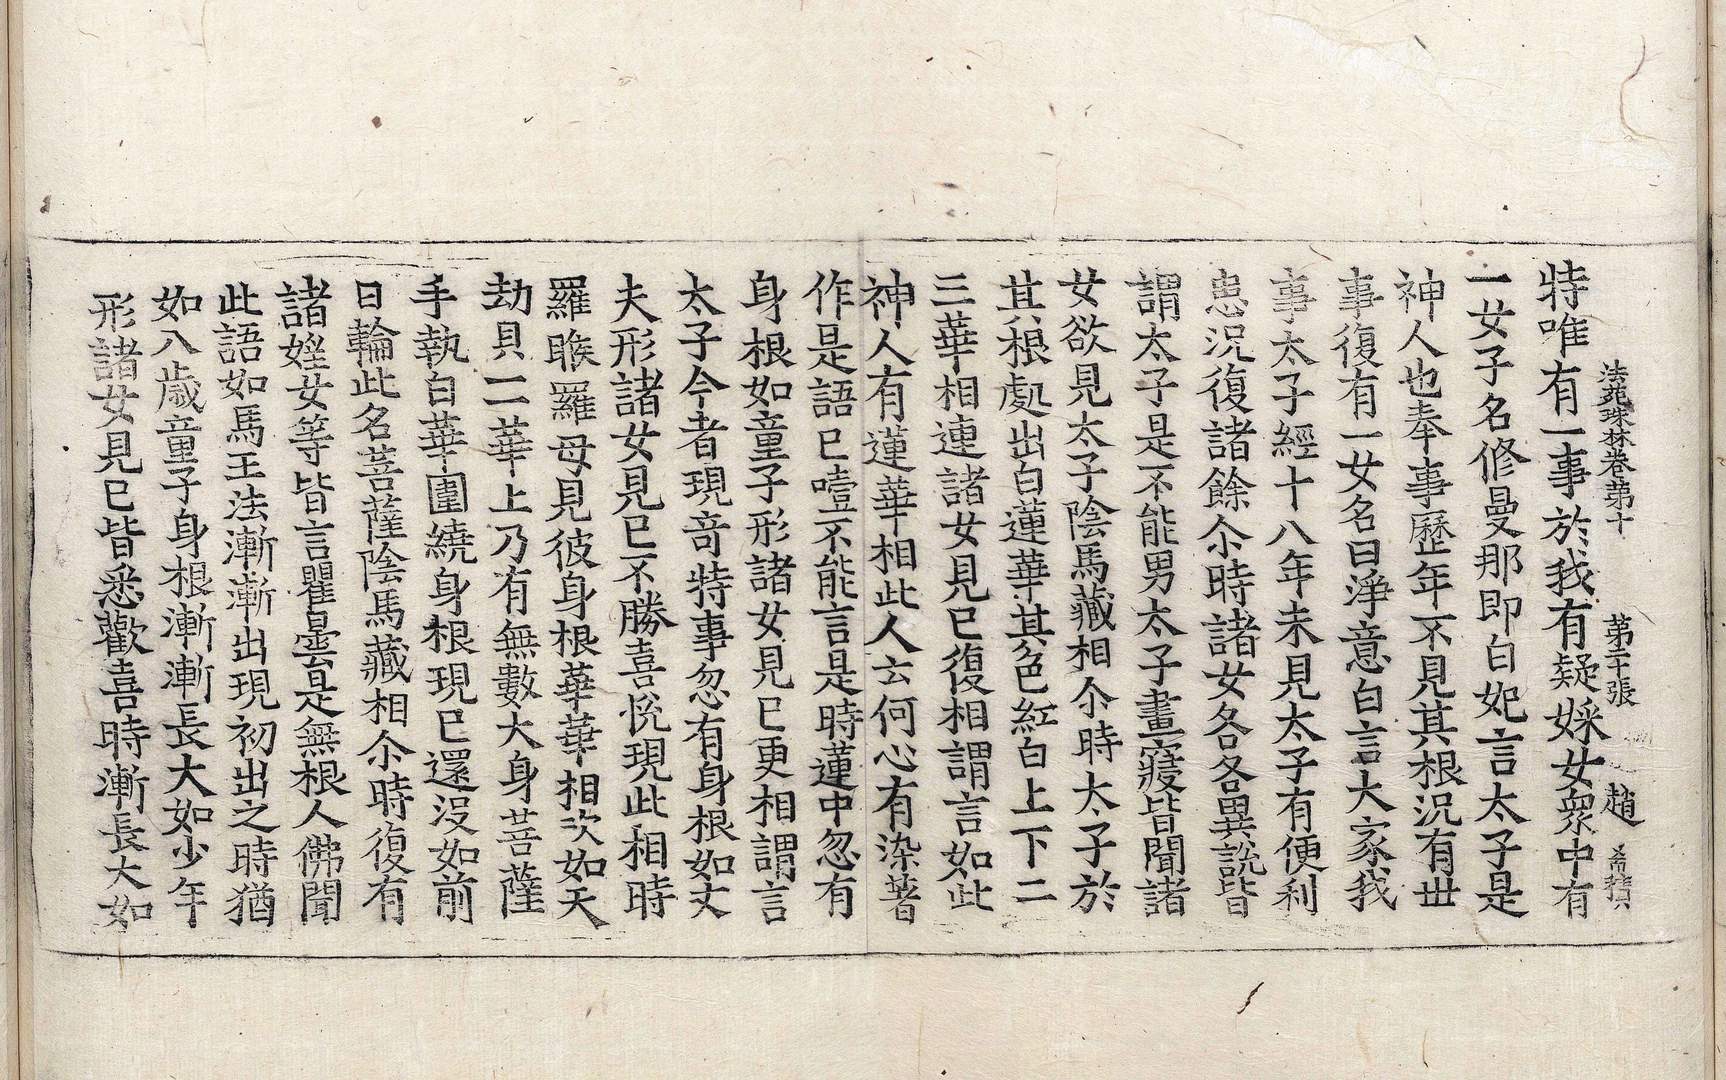 法苑珠林卷第十 第三十張 趙 希積
特唯有一事於我有疑婇女衆中有
一女子名修曼那即白妃言太子是
神人也奉事歷年不見其根況有丗
事復有一女名曰淨意白言大家我
事太子經十八年未見太子有便利
患況復諸餘尒時諸女各各異說皆
謂太子是不能男太子晝寢皆聞諸
女欲見太子陰馬藏相尒時太子於
其根處出白蓮華其色紅白上下二
三華相連諸女見已復相謂言如此
神人有蓮華相此人云何心有染著
作是語已噎不能言是時蓮中忽有
身根如童子形諸女見已更相謂言
太子今者現奇特事忽有身根如丈
夫形諸女見已不勝喜悅現此相時
羅睺羅母見彼身根華華相次如天
劫貝一一華上乃有無數大身菩薩
手執白華圍繞身根現已還沒如前
日輪此名菩薩陰馬藏相尒時復有
諸婬女等皆言瞿曇是無根人佛聞
此語如馬王法漸漸出現初出之時猶
如八歲童子身根漸漸長大如少年
形諸女見已皆悉歡喜時漸長大如